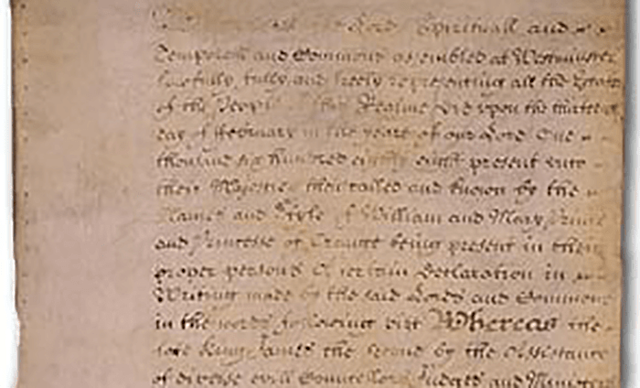 the Lords Spirituall and
Temporall and Commons assembled at Westminster
lawfully fully and freely representing all the Estates
of the People of this Realme did upon the thirteenth
day of February in the yeare of our Lord One
thousand six hundred eighty eight present unto
their Majesties then called and known by the
Names and Style of William and Mary Prince
and Princesse of Orange being present in their
proper persons a certain Declaration in
Writing made by the said Lords and Commons
in the words following vizt Whereas the
late King James the second by the Assistance
of diverse evill Councellors Judges and Ministers